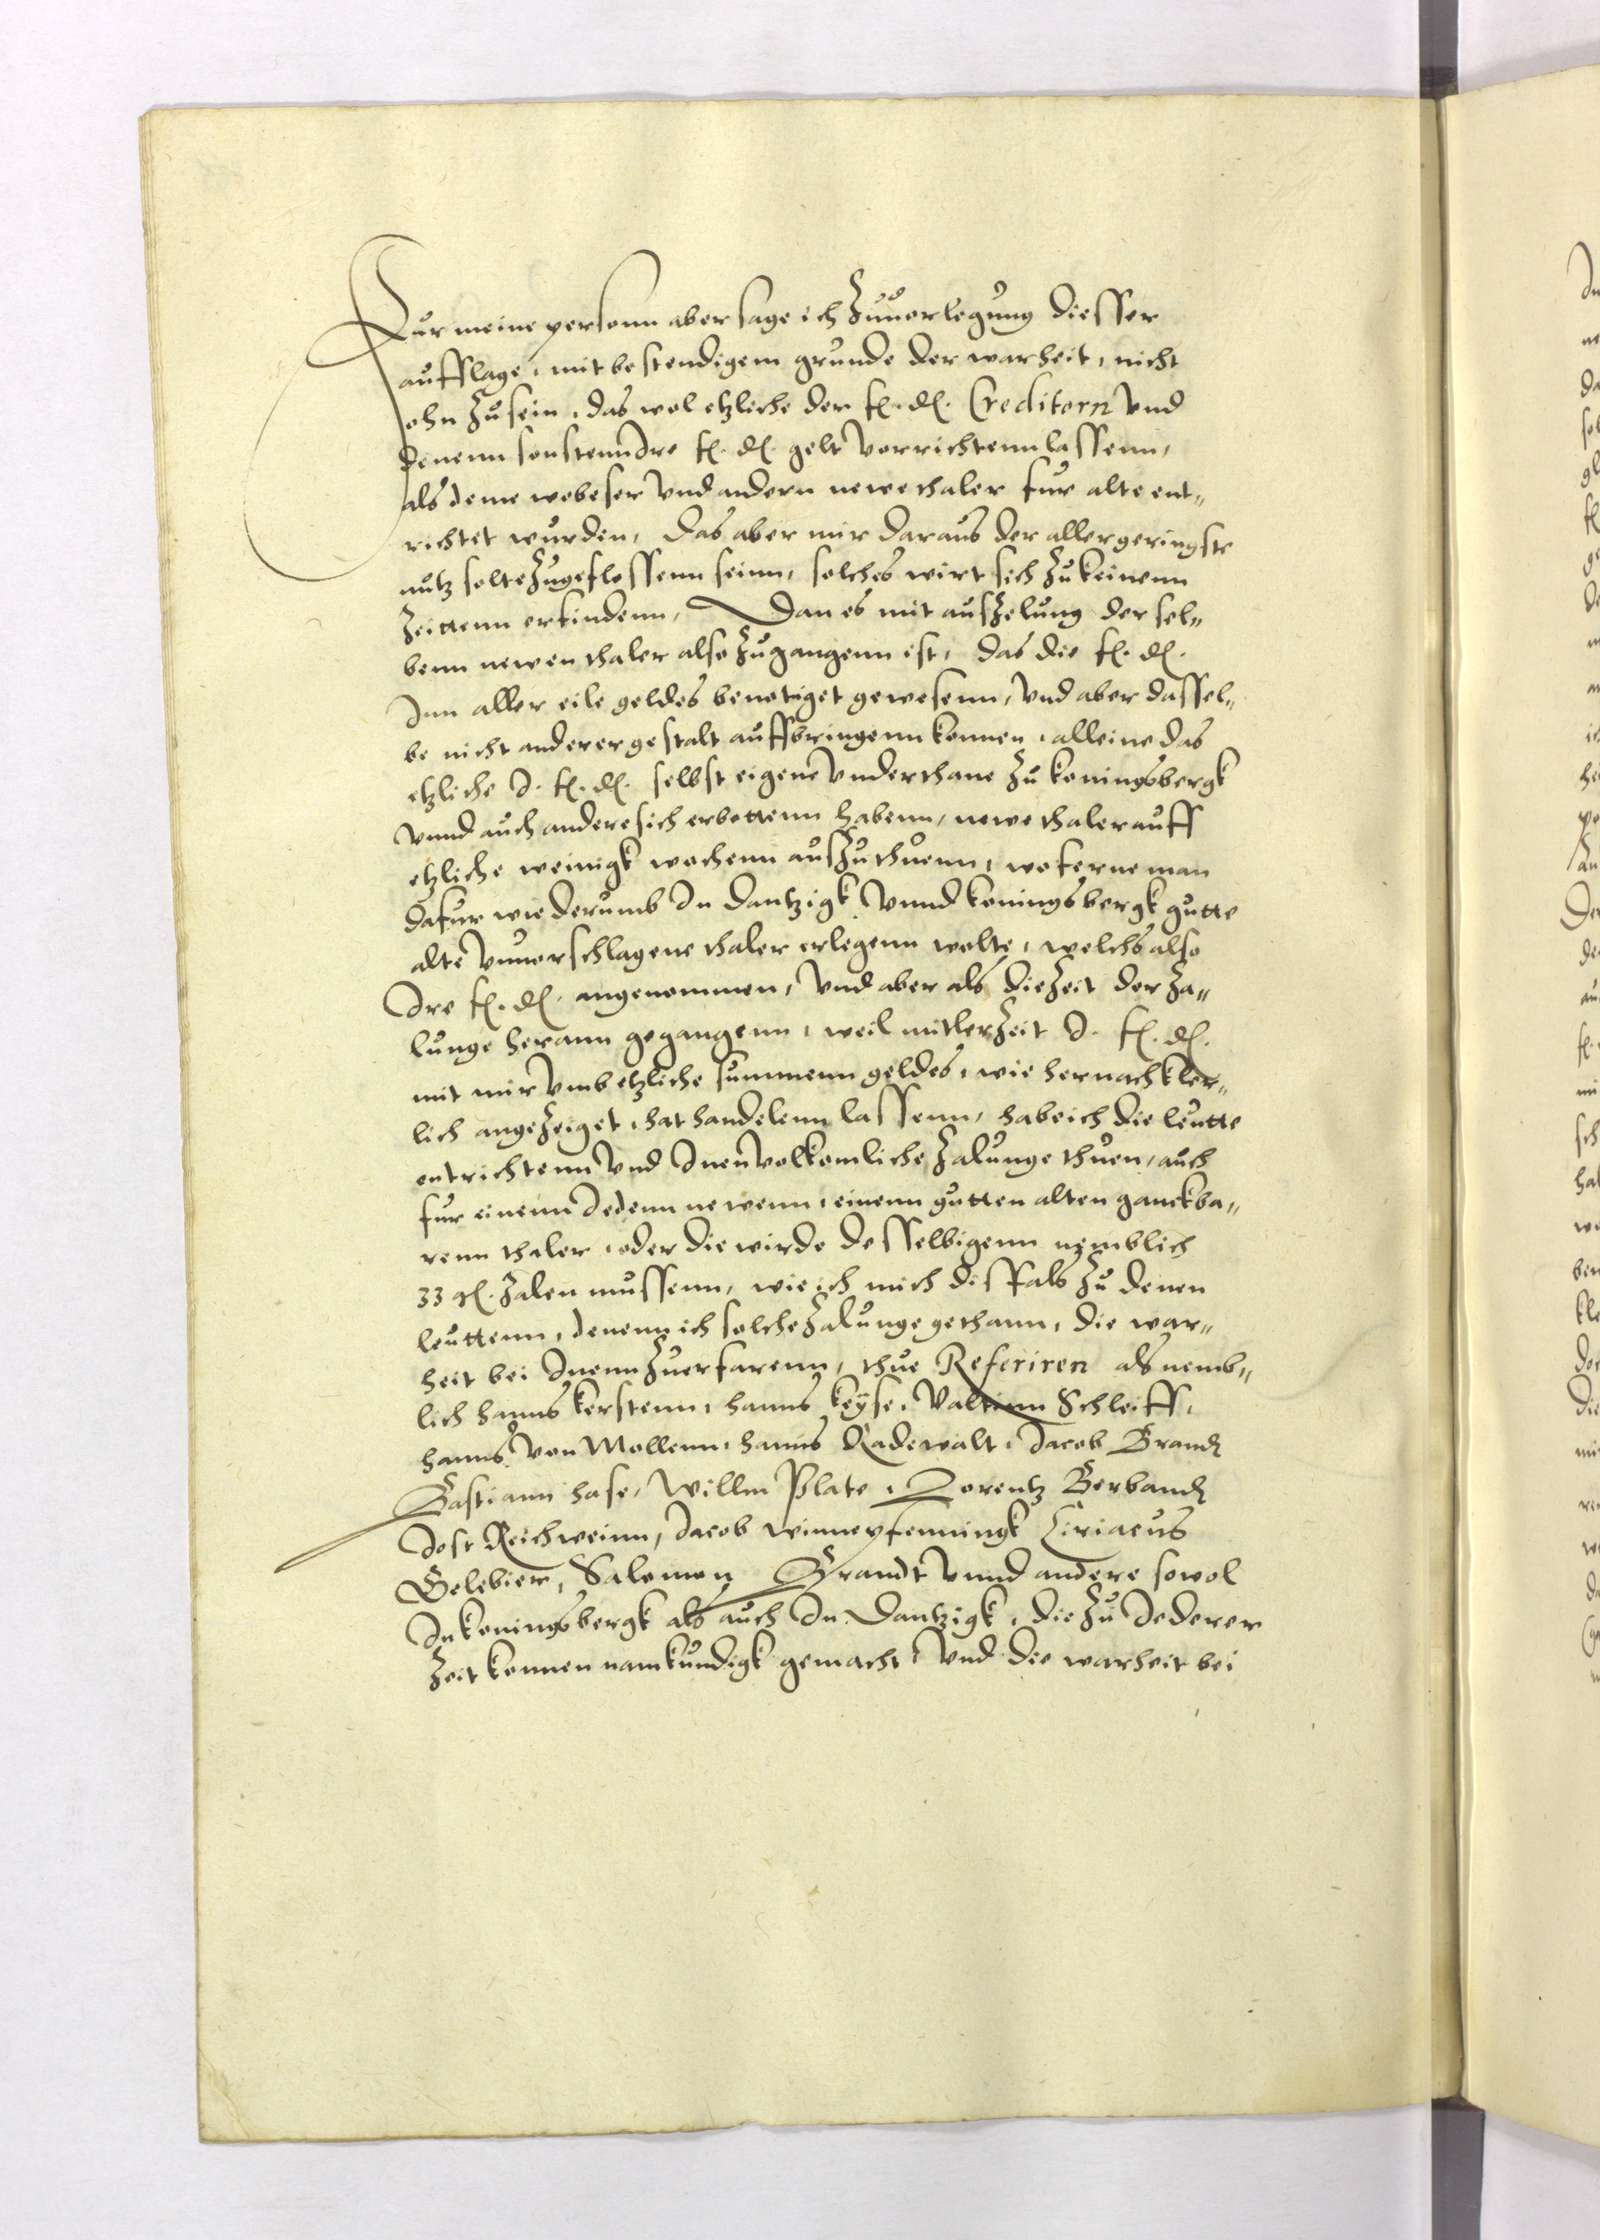 Fur meine personn aber sage ich Zuuorlegung diesser
aufflage, mit bestendigem grunde der warheit, nicht
ohn Zu sein, das wol etzliche der f. d. Creditorn vnd
denenn sonstenn Ire f. d. gelt vorrichtenn lassenn,
als deme webeser vnd andern newe thaler fur alte ent-
richtet wurden, Das aber mir daraus der allergeringste
nutz solte Zugeflossenn seinn, solches wirt sich Zu keinenn
Zeittenn erfindenn, Dan es mit ausZelung der sel-
benn newen thaler also Zugangenn ist, das die f. d.
Inn aller eile geldes benotiget gewesenn, vnd aber dassel-
be nicht anderer gestalt auffbringenn konnen, alleine das
etzliche I. f. d. selbst eigene vnderthane Zu koningsbergk
vnnd auch andere sich erbottenn habenn, newe thaler auff
etzliche weinigk wochenn ausZuthuenn, woferne man
dafur wiederumb In Dantzigk vnnd koningsbergk gutte
alte vnuorschlagene thaler erlegenn wolte, welchs also
Ire f. d. angenommen, vnd aber als die Zeit der Za-
lunge herann gegangenn, weil mitler Zeit I. f. d.
mit mir vmb etzliche summenn geldes, wie hernach kler-
lich angeZeiget, hat handelenn lassenn, habe ich die leutte
entrichtenn vnd Inen volkomliche Zalunge thuen, auch
fur einenn Jedenn newenn, einenn gutten alten ganckba-
renn thaler, oder die wirde desselbigenn nemblich
33 gl. Zalen mussenn, wie ich mich disfals Zu denen
leuttenn, denenn ich solche Zalunge gethann, die war-
heit bei Inenn Zuerfarenn, thue Referiren als nemb-
lich hanns kerstenn, hanns keyse, Valtinn Schleiff,
hanns von Mollenn, hanns Radewalt, Jacob Brandt
Bastiann hase, Willm Plate, Lorentz Gerbandt
Jost Reichweinn, Jacob winnepfenningk Ciriacus
Gelebier, Salomon Brandt vnnd andere sowol
In koningsbergk als auch In Dantzigk, die Zu Jederer
Zeit konnen namkundigk gemacht vnd die warheit bei